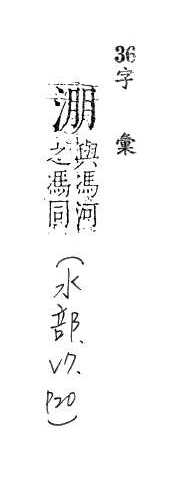 36字彙
淜
與馮河
之馮同
(水部.V7.P20)